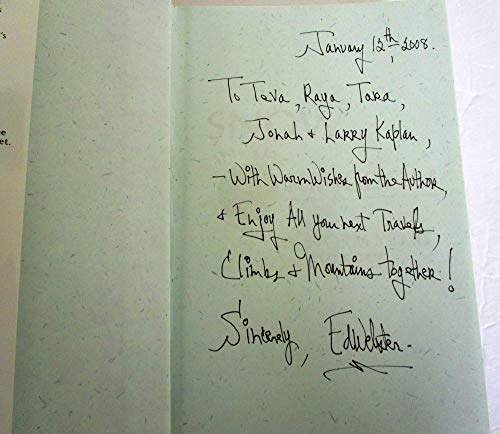 's
et.
January 12th, 2008.
To Teva, Raya, Tara,
Jonah & Larry Kaplan,
- With Warm Wishes from the Author,
& Enjoy All your next Travels,
Climbs & Mountains together!
Sincerely, Ed Webster -